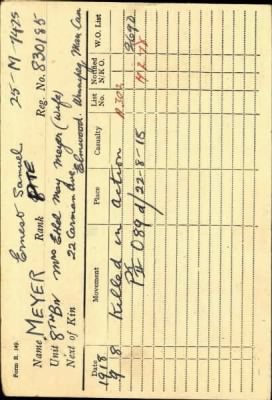 25-M-7425
Ernest Samuel
Name MEYER Rank PTE Reg. No. 830185
Unit 8th Bn Mrs Ethel May Meyer (wife)
Next of Kin 22 Carman Ave Elmwood. Winnipeg Man Can
Date Movement Place Casualty List No. Notified N/K O. W.O. List
1918
8 Killed in action
Pt II O 89 d/22-8-15